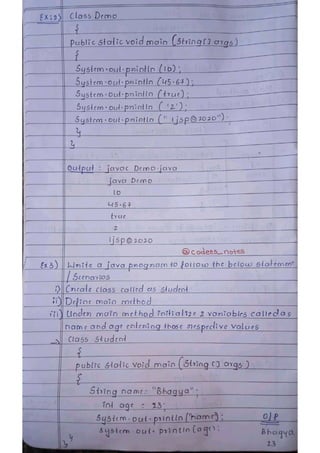 Ex:2) Class Demo
{
Public Static void main (String[] args)
{
System.out.println (10);
System.out.println (45.67);
System.out.println (true);
System.out.println ('2');
System.out.println ("ijsp@2020");
}
}
Output : javac Demo.java
java Demo
10
45.67
true
2
ijsp@2020
@codees_notes
Ex 3) Write a java program to follow the below statement
/ Scenarios
i) Create class called as student
ii) Define main method
iii) Under main method initialize 2 variables called as
name and age entering those respective values
→ Class Student
{
public Static Void main (String [] args)
{
String name = "Bhagya";
int age = 23;
System.out.println (name); O/P
System.out.println (age); Bhagya
} 23
}